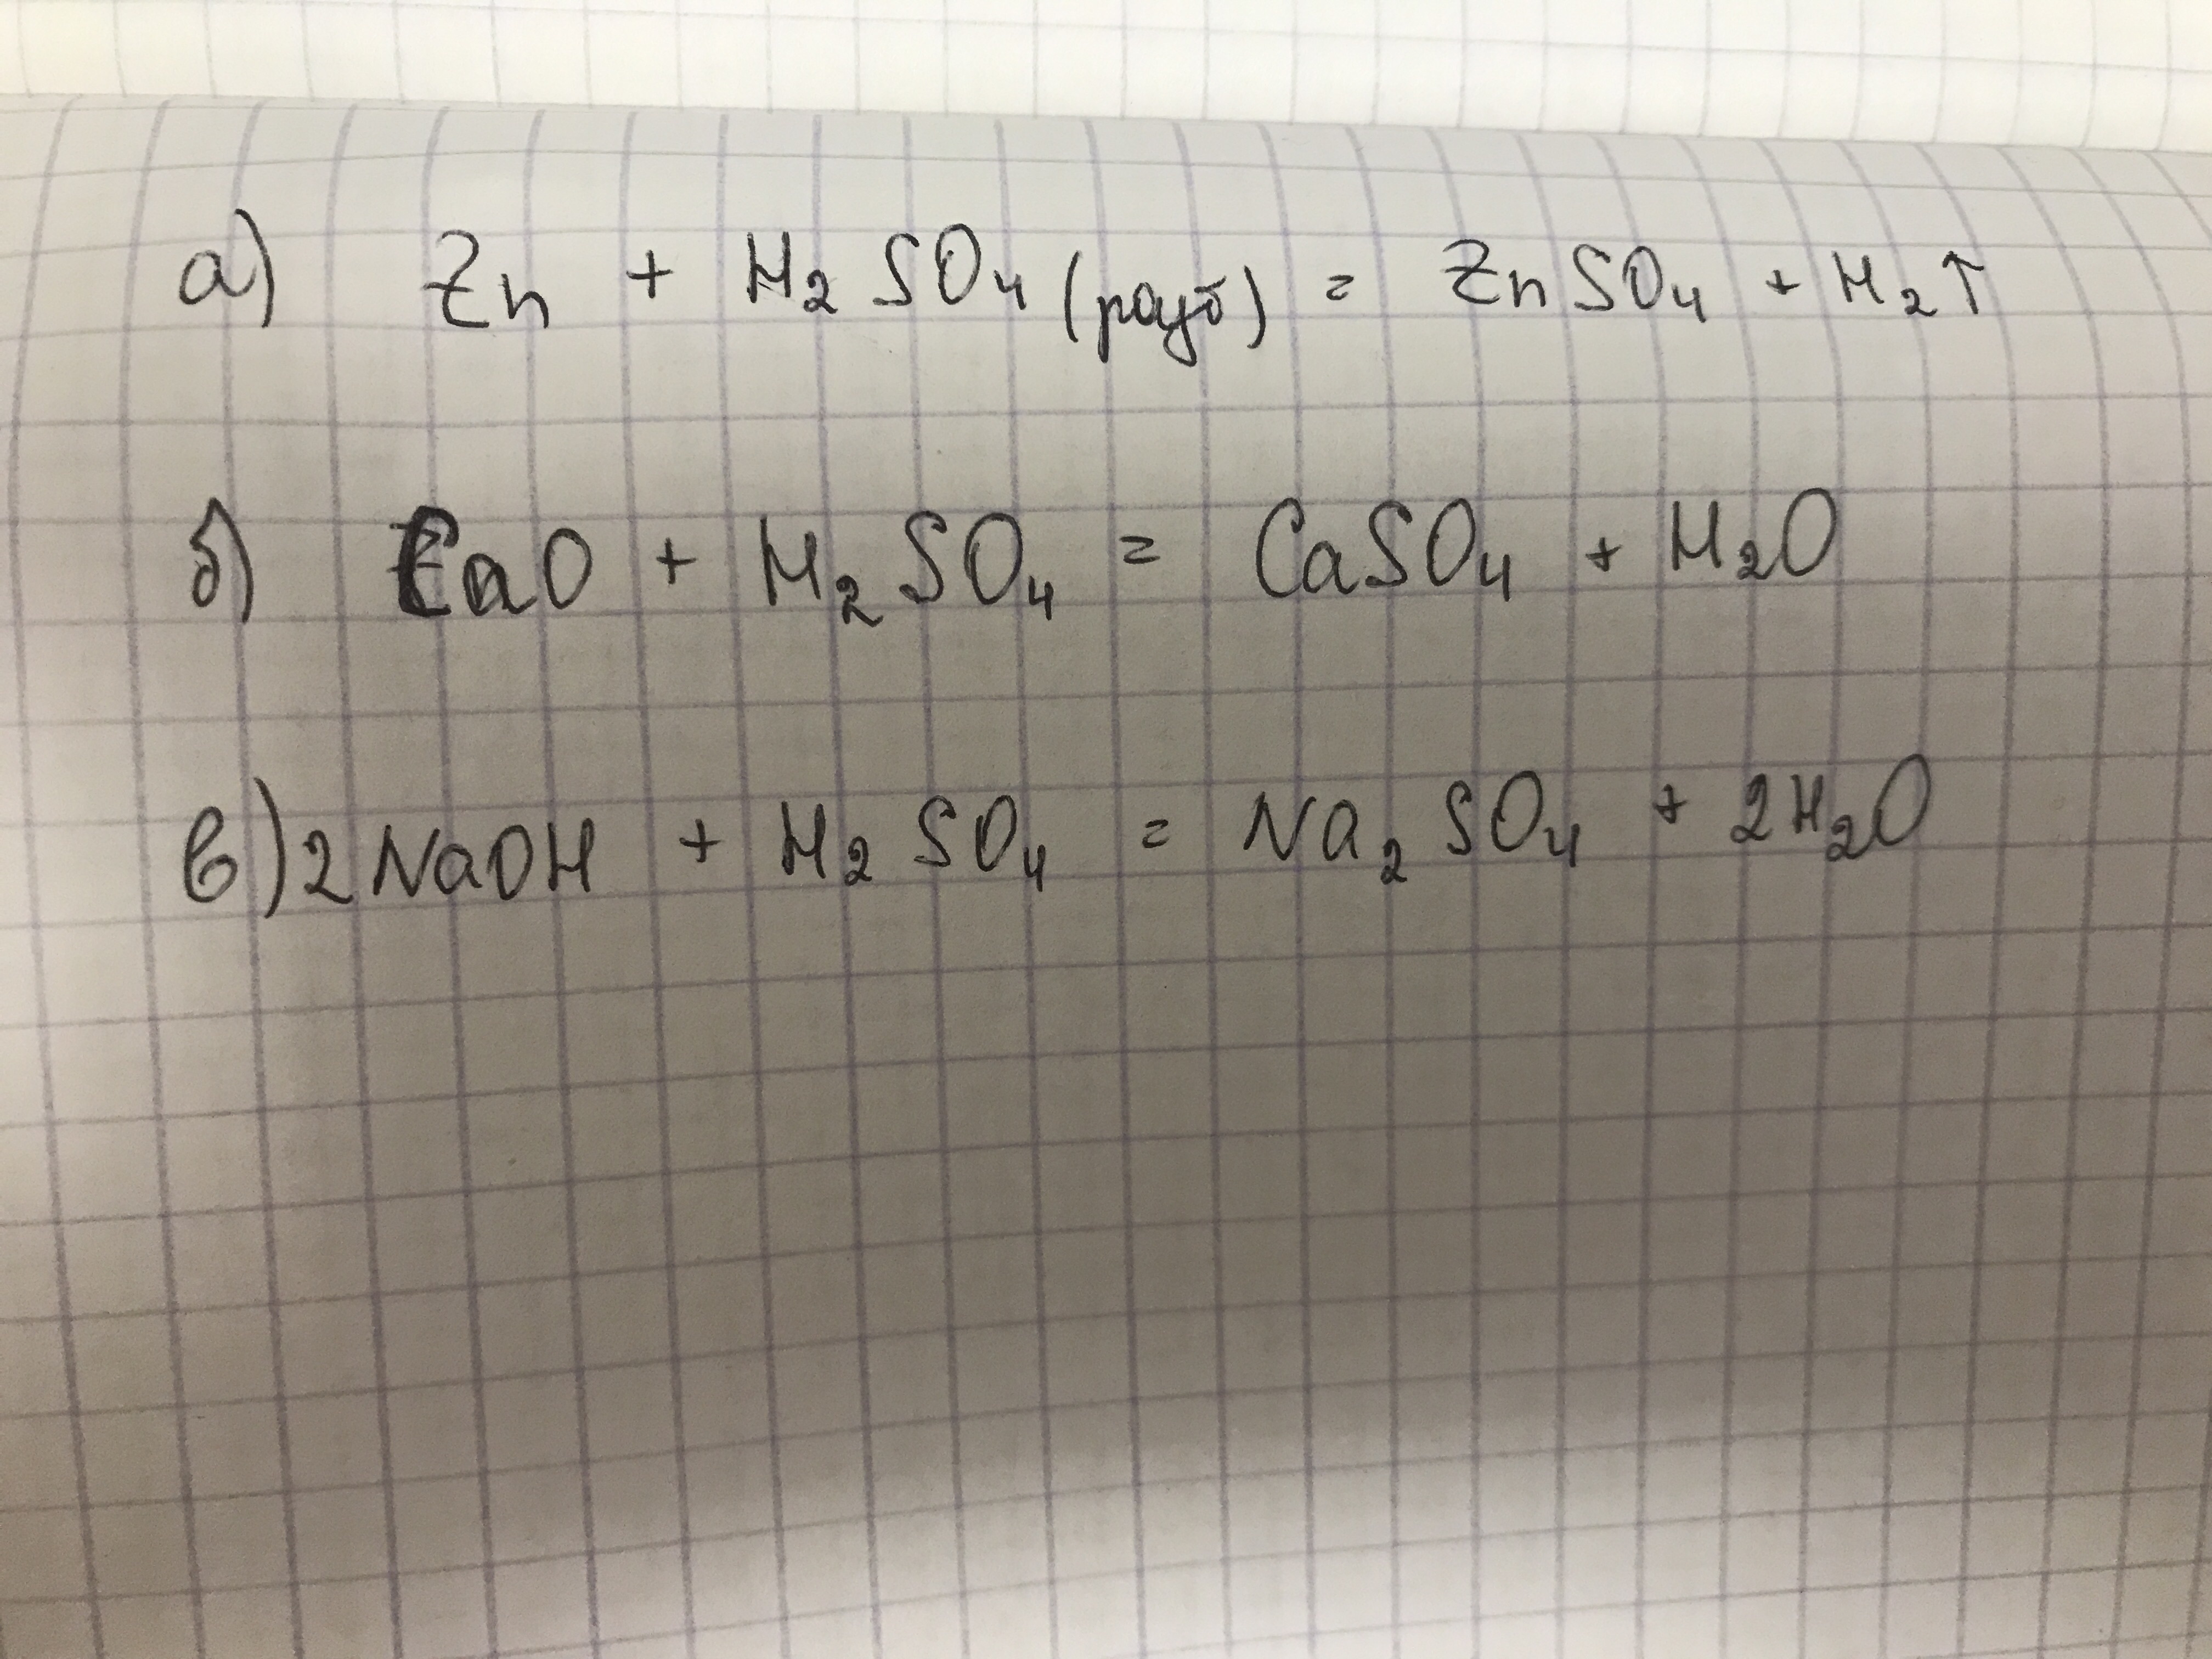 а) Zn + H₂SO₄ (разб) = ZnSO₄ + H₂↑
б) CaO + H₂SO₄ = CaSO₄ + H₂O
в) 2NaOH + H₂SO₄ = Na₂SO₄ + 2H₂O